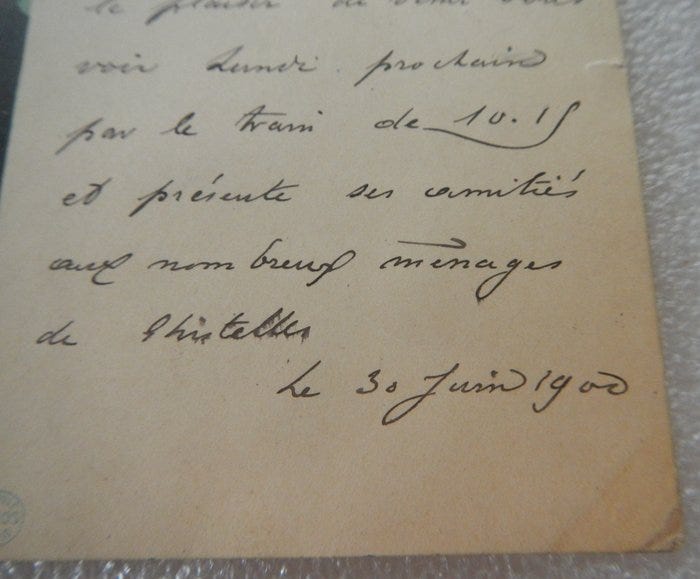 le plaisir de venir vous
voir Lundi prochain
par le train de 10.15
et présente ses amitiés
aux nombreux ménages
de Ghistelles
Le 30 Juin 1900